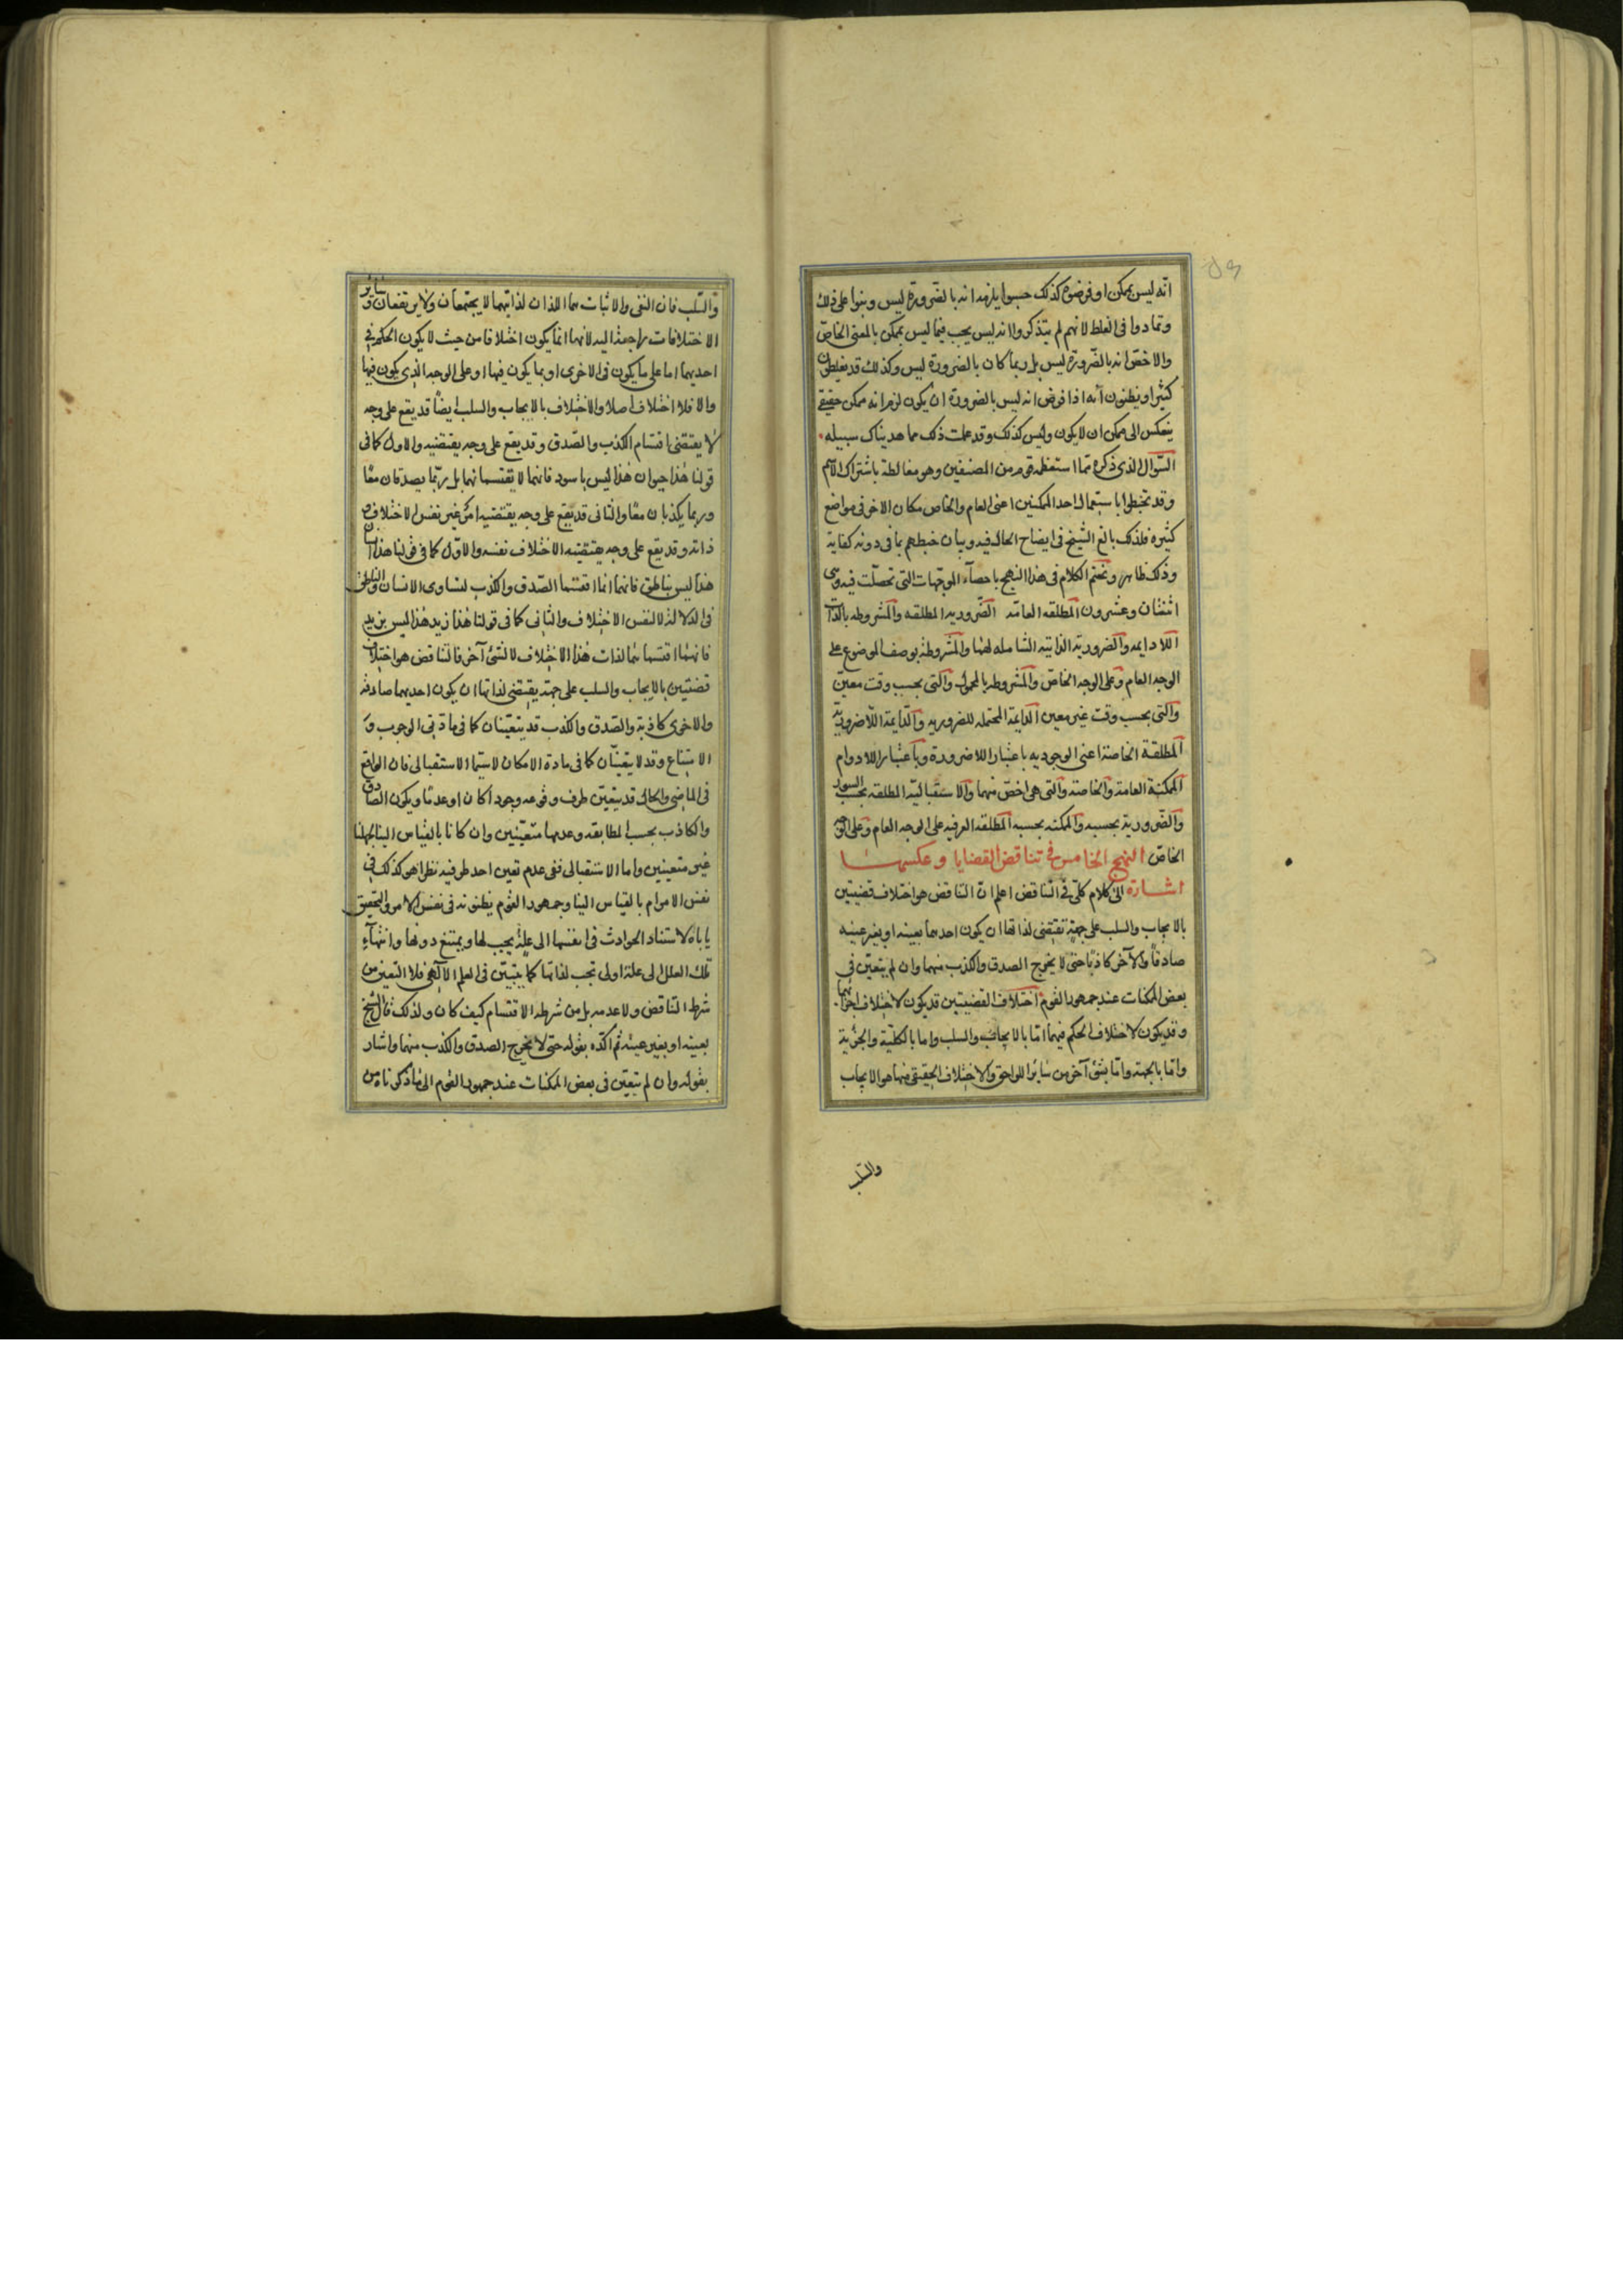 انه ليس بممكن او فرضوه كذلك حسبوا يلزمه انه بالضرورة ليس وبنوا على ذلك
وتمادوا فى الغلط لانهم لم يتذكروا انه ليس يجب فيما ليس بممكن بالمعنى الخاص
والاخص انه بالضرورة ليس بل ربما كان بالضرورة ليس وكذلك قد يغلطون
كثيرا ويظنون انه اذا فرض انه ليس بالضرورة ان يكون لزم انه ممكن حقيقى
ينعكس الى ممكن ان لا يكون وليس كذلك وقد علمت ذلك مما هديناك سبيله
السّوال الذى ذكره مما استعظمه قوم من المصنفين وهو مغالطة باشتراك الاسم
وقد تخبطوا باستعمال احد الممكنين اعنى العام والخاص مكان الاخر فى مواضع
كثيره فلذلك بالغ الشيخ فى ايضاح الحال فيه وبيان خبطهم بما فى دونه كفاية
وذلك ظاهر ونختم الكلام فى هذا النهج باحصآء الموجّهات التى تحصلت فيه وهى
اثنتان وعشرون المطلقه العامّه الضروريه المطلقه والمشروطه بالذات
اللادايمه والضرورية الذاتيه الشامله لهما والمشروطة بوصف الموضوع على
الوجه العام وعلى الوجه الخاص والمشروطه بالمحمول والتى بحسب وقت معين
والتى بحسب وقت غير معين الدايمة المحتمله للضروريه والدّايمة اللاضروريّة
المطلقة الخاصة اعنى الوجوديه باعتبار اللاضرورة وباعتبار اللادوام
الممكنة العامة والخاصة والتى هى اخصّ منهما والاستقبالية المطلقه بحسب السور
والضرورية بحسبه والممكنه بحسبه المطلقه العرفيه على الوجه العام وعلى الوجه
الخاص النهج الخامس فى تناقض القضايا وعكسها
اشارة الى كلام كلّى فى التناقض اعلم انّ التناقض هو اختلاف قضيتين
بالايجاب والسلب على جهةٍ تقتضى لذاتها ان يكون احدهما بعينه او بغير عينه
صادقاً والآخر كاذبًا حتى لا يخرج الصدق والكذب منهما وان لم يتعيّن فى
بعض الممكنات عند جمهور القوم اختلاف القضيتين قد يكون لاختلاف اجزائهما
وقد يكون لاختلاف الحكم فيهما امّا بالايجاب والسلب واما بالكليّة والجزئية
وامّا بالجهة وامّا بشئ آخر من سائر اللواحق والاختلاف الحقيقى منها هو الايجاب
والسّلب
والسّلب فان النفى والاثبات هما اللذان لذاتيهما لا يجتمعان ولا يرتفعان وسائر
الاختلافات راجعة اليه لانها انما يكون اختلافا من حيث لا يكون الحكم فى
احديهما اما على ما يكون فى الاخرى او بما يكون فيها او على الوجه الذى يكون فيها
والا فلا اختلاف اصلا والاختلاف بالايجاب والسلب ايضًا قد يقع على وجه
لا يقتضى اقتسام الكذب والصّدق وقد يقع على وجه يقتضيه والاول كما فى
قولنا هذا حيوان هذا ليس باسود فانهما لا يقتسمانهما بل ربّما يصدقان معًا
وربما يكذبان معًا والثانى قد يقع على وجه يقتضيه امرٌ غير نفس الاختلاف
ذاته وقد يقع على وجه يقتضيه الاختلاف نفسه والاوّل كما فى قولنا هذا انسان
هذا ليس بناطق فانهما انما اقتسما الصّدق والكذب لتساوى الانسان والناطق
فى الدلالة لا لنفس الاختلاف والثانى كما فى قولنا هذا زيد هذا ليس بزيد
فانهما اقتسماهما لذات هذا الاختلاف لا لشئ آخر فالتناقض هو اختلاف
قضيتين بالايجاب والسلب على جهة يقتضى لذاتها ان يكون احديهما صادقة
والاخرى كاذبة والصّدق والكذب قد يتعيّنان كما فى مادتى الوجوب و
الامتناع وقد لا يتعيّنان كما فى مادة الامكان لاسيّما الاستقبالى فان الواقع
فى الماضى والحال قد يتعيّن طرف وقوعه وجودا كان او عدمًا ويكون الصادق
والكاذب بحسب المطابقه وعدمها متعيّنين وان كانا بالقياس الينا لجهلنا
غير متعينين واما الاستقبالى ففى عدم تعين احد طرفيه نظرا هو كذلك فى
نفس الامر ام بالقياس الينا وجمهور القوم يظنونه فى نفس الامر والتحقيق
يا باه لاستناد الحوادث فى انفسها الى علة يجب لها ويمتنع دونها وانتهآء
تلك العلل الى علة اولى تجب لذاتها كما يتبيّن فى العلم الآلهى فلا التعين من
شرط التناقض ولا عدمه بل من شرطه الاقتسام كيف كان ولذلك قال الشيخ
بعينه او بغير عينه ثم اكّده بقوله حتى لا يخرج الصدق والكذب منهما واشار
بقوله وان لم يتعيّن فى بعض الممكنات عند جمهور القوم الى ما ذكرناه من